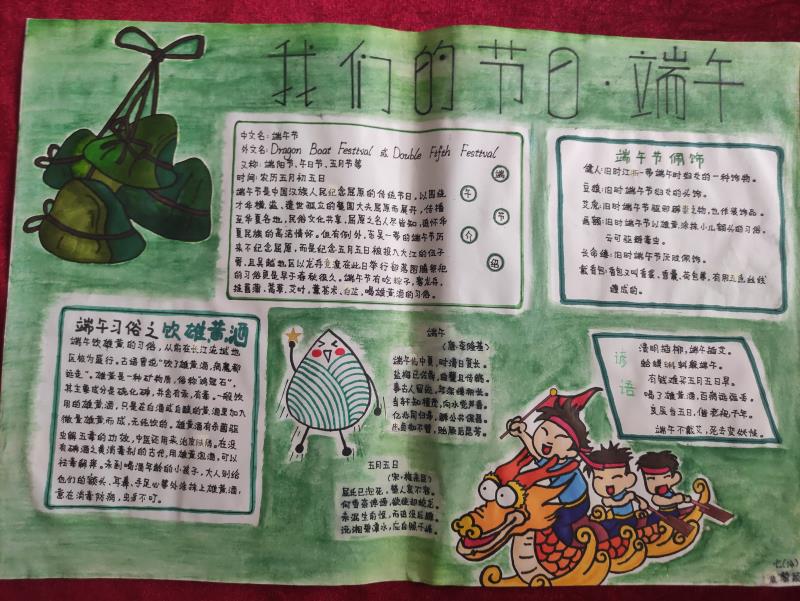 我们的节日·端午
中文名：端午节
外文名：Dragon Boat Festival 或 Double Fifth Festival
又称：端阳节，午日节，五月节等
时间：农历五月初五日
端午节是中国汉族人民纪念屈原的传统节日，以围绕
才华横溢、遗世独立的楚国大夫屈原而展开，传播
至华夏各地，民俗文化共享，屈原之名人尽皆知，追怀华
夏民族的高洁情怀。但有例外，东吴一带的端午节历
来不纪念屈原，而是纪念五月五日被投入大江的伍子
胥，且吴越地区以龙舟竞渡在此日举行部落图腾祭祀
的习俗更是早于春秋很久。端午节有吃粽子，赛龙舟，
挂菖蒲、蒿草、艾叶，薰苍术、白芷，喝雄黄酒的习俗。
端午节介绍
端午节佩饰
健人：旧时江浙一带端午时妇女的一种饰物。
豆娘：旧时端午节妇女的头饰。
艾虎：旧时端午节驱邪辟祟之物，也作装饰品。
画额：旧时端午节以雄黄涂抹小儿额头的习俗，
云可驱避毒虫。
长命缕：旧时端午节厌胜佩饰。
戴香包：香包又叫香袋、香囊、荷包等，有用五色丝线
缠成的。
端午习俗之饮雄黄酒
端午饮雄黄的习俗，从前在长江流域地
区极为盛行。古语曾说"饮了雄黄酒，病魔都
远走"。雄黄是一种矿物质，俗称"鸡冠石"，
其主要成分是硫化砷，并含有汞，有毒。一般饮
用的雄黄酒，只是在白酒或自酿的黄酒里加入
微量雄黄而成，无纯饮的。雄黄酒有杀菌驱
虫解五毒的功效，中医还用来治皮肤病。在没
有碘酒之类消毒剂的古代，用雄黄泡酒，可以
祛毒解痒。未到喝酒年龄的小孩子，大人则给
他们的额头、耳鼻、手足心等处涂抹上雄黄酒，
意在消毒防病，虫豸不叮。
端午
（唐·李隆基）
端午临中夏，时清日复长。
盐梅已佐鼎，曲糵且传觞。
事古人留迹，年深缕积长。
当轩知槿茂，向水觉芦香。
亿兆同归寿，群公共保昌。
忠贞如不替，贻厥后昆芳。
五月五日
（宋·梅尧臣）
屈氏已沉死，楚人哀不容。
何尝奈谗谤，徒欲却蛟龙。
未泯生前恨，而追没后踪。
沅湘碧潭水，应自照千峰。
谚语
清明插柳，端午插艾。
蛤蟆蝌蚪躲端午。
有钱难买五月五日旱。
喝了雄黄酒，百病远远丢。
良辰当五日，偕老祝千年。
端午不戴艾，死去变妖怪。